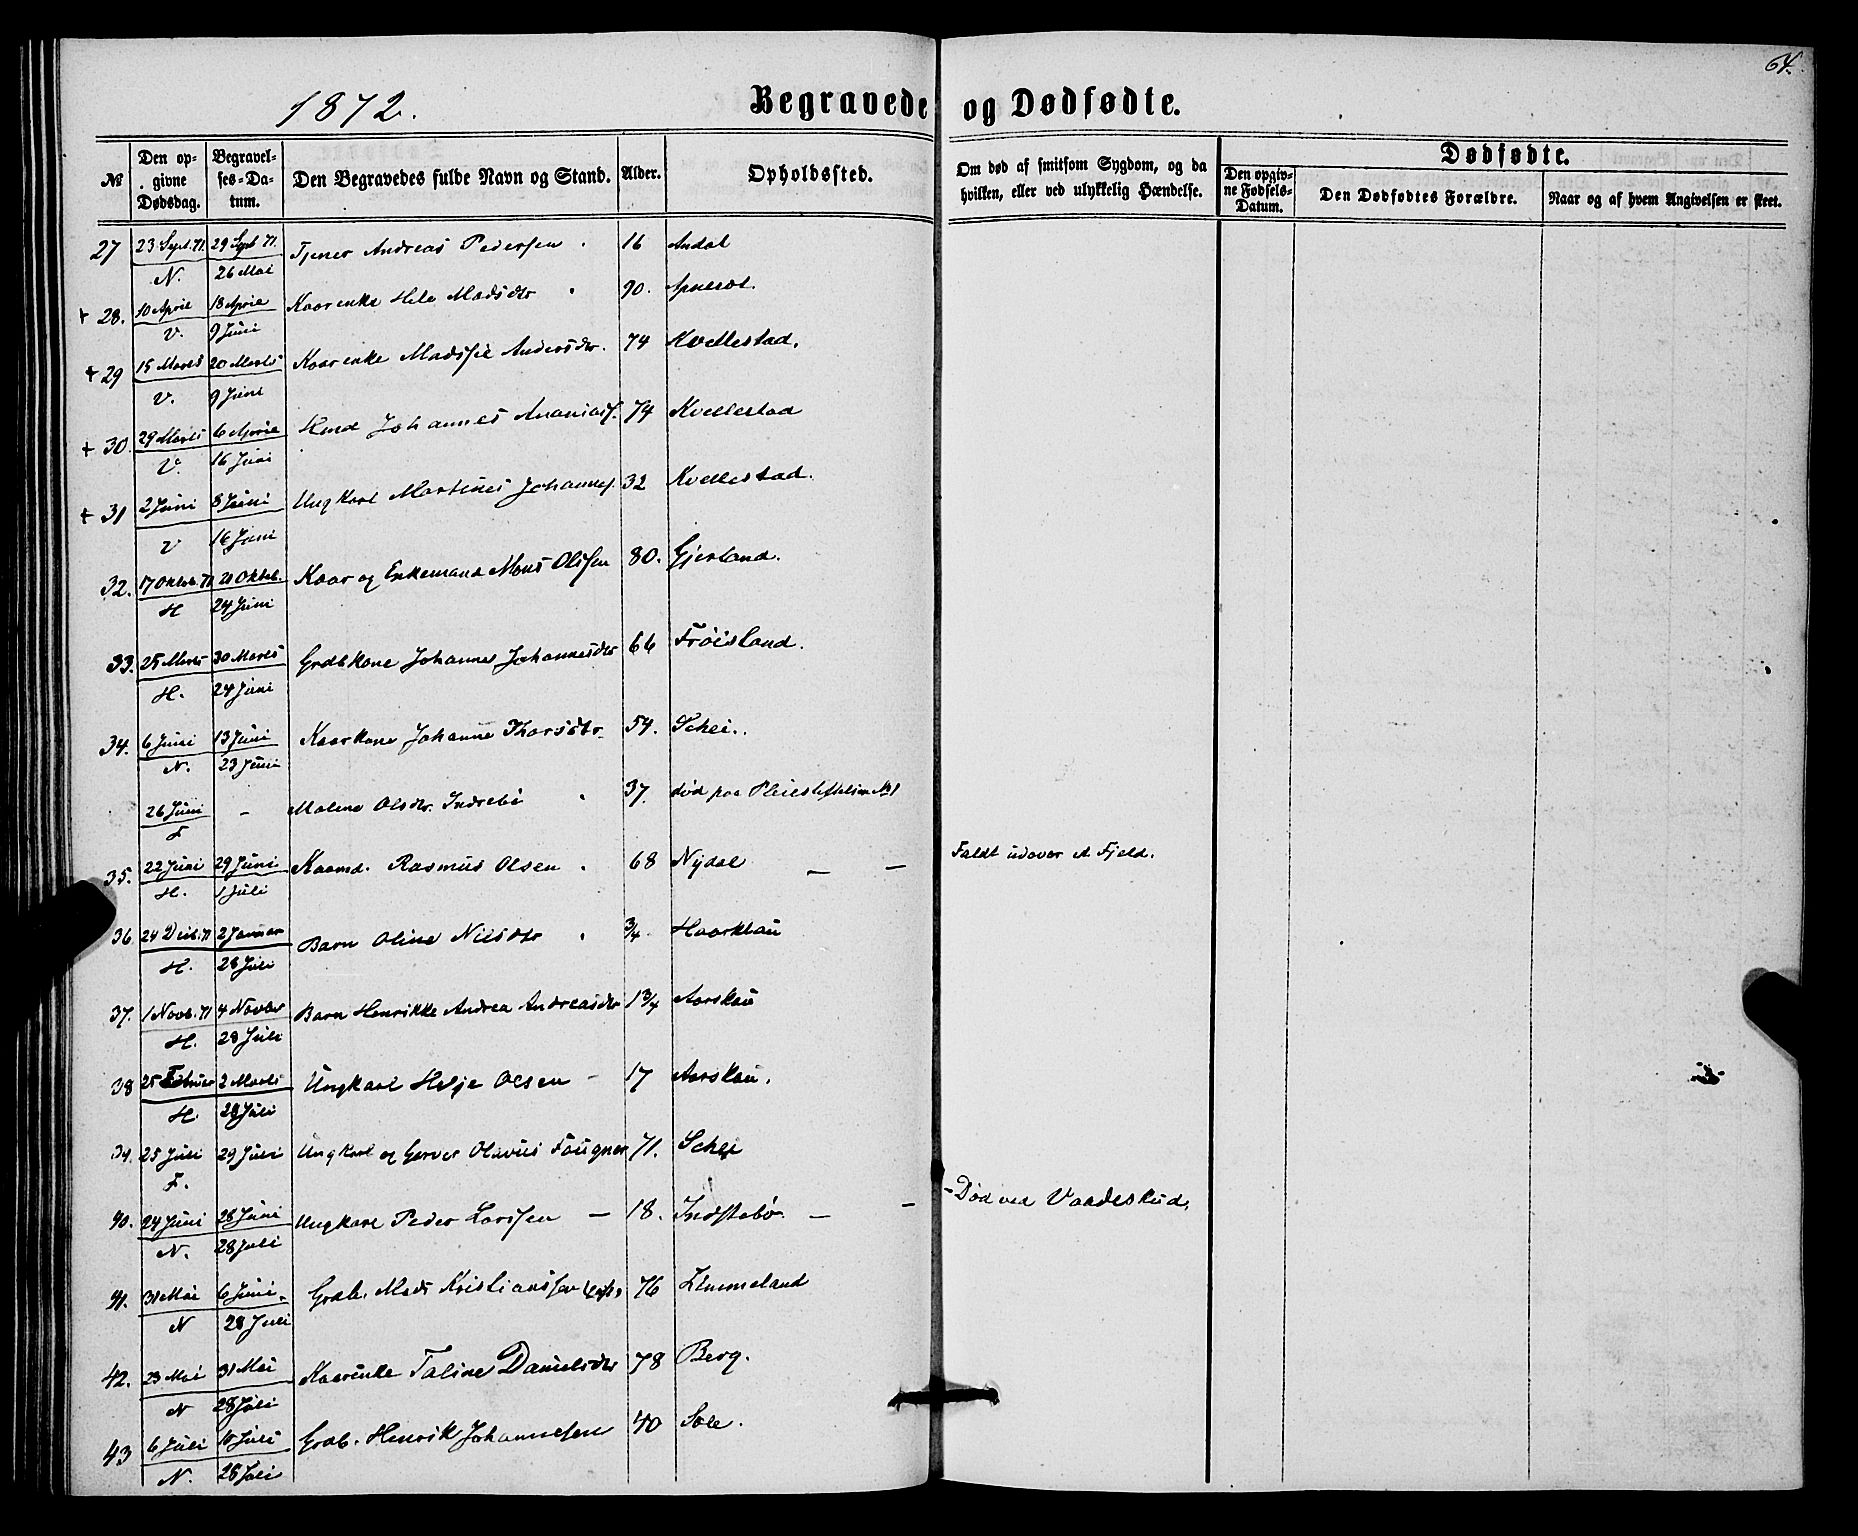 64.
1872. Begravede og Dødfødte.
№ Den opgivne Dødsdag. Begravelses-Datum. Den Begravedes fulde Navn og Stand. Alder. Opholdssted. Om død af smitsom Sygdom, og da hvilken, eller ved ulykkelig Hændelse. Dødfødte. Den opgivne Fødsels-Datum. Den Dødfødtes Forældre. Naar og af hvem Angivelsen er skeet.
27 23 Sept. 71 29 Sept 71. Tjener Andreas Pedersen 16 Andal
N. 26 Mai
+ 28. 10 April 18 April Kaarenke Madsdtr 90.
V. 9 Juni
+ 29 15 Marts 20 Marts Kaarenke Andersdtr. 74 Kvellestad.
V. 9 Juni
+ 30. 29 Marts 6 April Johannes Ananiass. 74 Kvellestad
V. 16 Juni
+ 31 2 Juni 8 Juni Ungkarl Martinus Johannes. 32 Kvellestad.
V 16 Juni
32. 17 Oktob. 71 21 Oktob. Kaar og Enkemand Mons Olssen 80. Gjerland.
H 24 Juni
33. 25 Marts 30 Marts Grdbkone Johanne Johannesdtr 66 Frøisland.
H. 24 Juni
34. 6 Juni 13 Juni Kaarkone Johanne Thorsdtr. 54. Schei.
N. 23 Juni
26 Juni - Malene Olsdtr. Indrebø 37. død paa Pleiestiftelsen № 1
F
35. 22 Juni 29 Juni Kaarmd. Rasmus Olsen 68 Nydal — — Faldt udover et Fjeld.
H. 1 Juli
36. 24 Decb. 71 2 Januar Barn Oline Nilsdtr 3/4. Haarklau
H. 28 Juli
37. 1 Novb. 71 4 Novbr Barn Henrikke Andrea Andreasdtr 1 3/4 Aarskau
H. 28 Juli
38 25 Februar 2 Marts Ungkarl Helje Olsen - 17 Aarskau.
H. 28 Juli
39. 25 Juli 29 Juli Ungkarl og Garver Olavus Fougner 71. Schei
F.
40. 24 Juni 28 Juni Ungkarl Peder Larssen — 18. Indstebø — — Død ved Vaadeskud.
N. 28 Juli
41. 31 Mai 6 Juni. Grdb. Mads Kristianssen 76 Limmeland
N 28 Juli
42. 23 Mai 31 Mai Kaarenke Taline Danielsdtr 78 Berg.
N 28 Juli
43 6 Juli 10 Juli Grdb. Henrik Johannesen 40 Sole.
N. 28 Juli